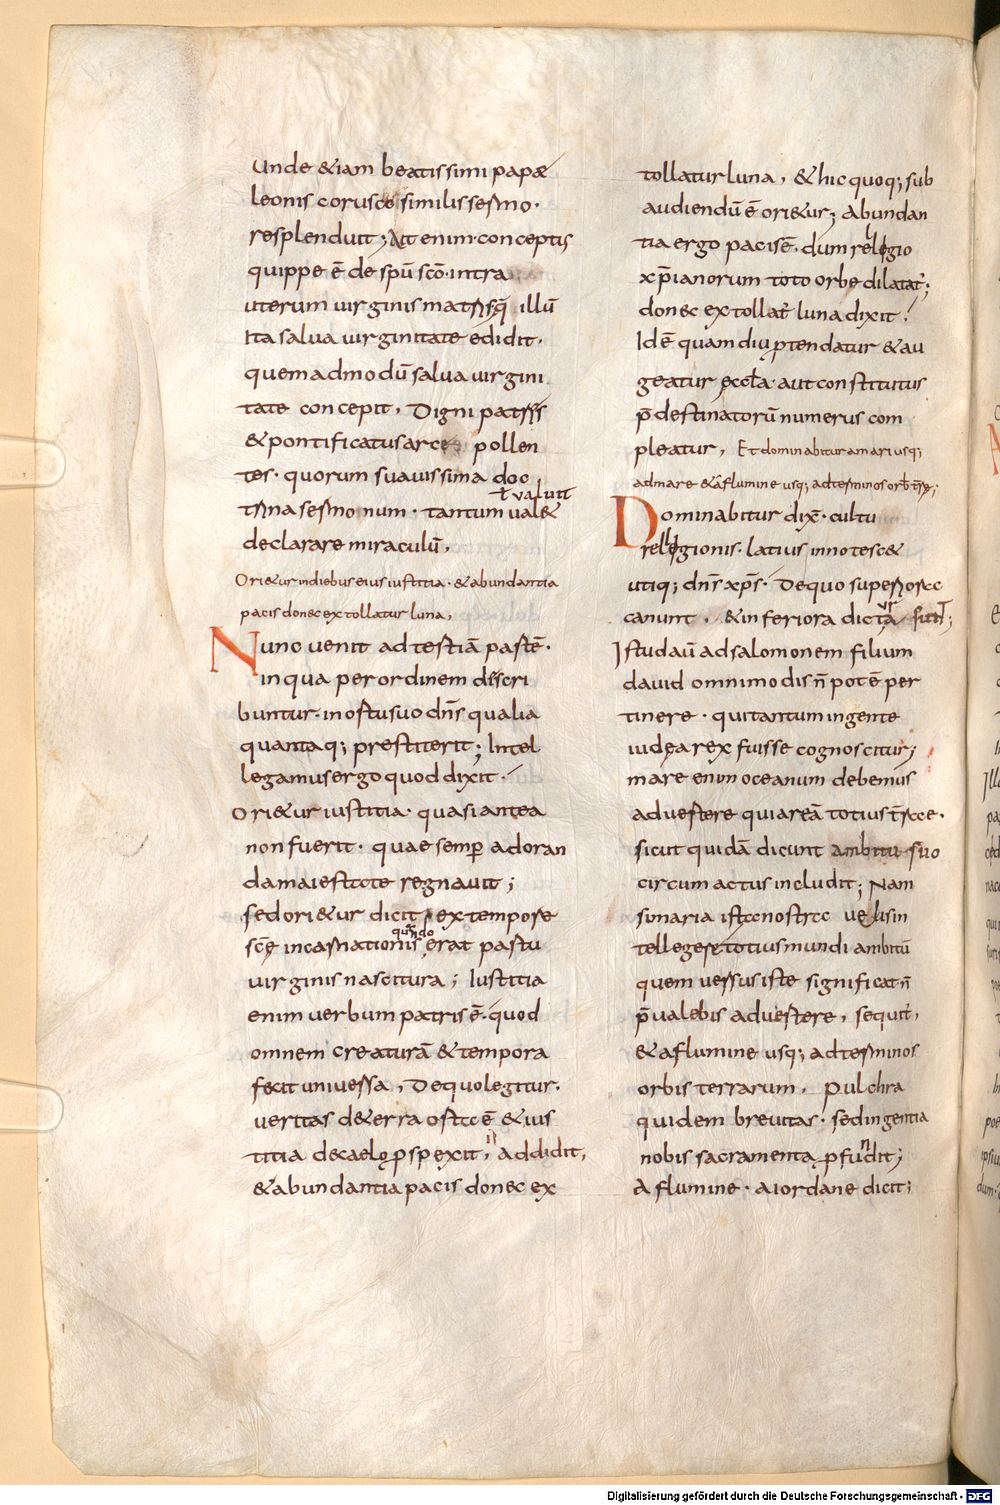 Unde &iam beatissimi papae
leonis corusco similis sermo·
resplenduit; Ait enim· conceptis
quippe ē de spū scō· intra
uterum uirginis matris q̄ illū
Ita salua uirginitate edidit·
quemadmodū salua uirgini
tate concepit, Digni patris
& pontificatus arce pollen
tes· quorum suauissima doc
ł valuit
trina sermonum· tantum ual&
declarare miraculū,
Ori&ur in diebus eius iustitia· & abundantia
pacis donec extollatur luna,
Nunc uenit ad tertiā partē·
in qua per ordinem discri
buntur· in ortu suo dn̄s qualia
quantaq; prestiterit; Intel
legamus ergo quod dixit·
Ori&ur iustitia· quasi antea
non fuerit· quae semp adoran
da maiestate regnauit;
sed ori&ur dicit, ex tempore
quando
scę incarnationis erat partu
uirginis nascitura; Iustitia
enim uerbum patris ē· quod
omnem creaturā & tempora
fecit uniuersa, De quo legitur·
ueritas de terra orta ē & ius
titia de caelo prospexit, addidit,
& abundantia pacis donec ex
tollatur luna, & hic quoq; sub
audiendū ē ori&ur; Abundan
tia ergo pacis ē· dum religio
xp̄ianorum toto orbe dilatat̄;
donec extollat̄ luna dixit!
Id ē quamdiu ptendatur & au
geatur eccła· aut constitutus
p̄destinatorū numerus com
pleatur, Et dominabitur a mari usq;
ad mare & a flumine usq; ad terminos orb̄ t̄re;
Dominabitur dix̄· cultu
religionis· latius innotesc&
utiq; dn̄s xp̄s· De quo superiora
ur
canunt· & inferiora dicta sunt;
Istud aū ad salomonem filium
dauid omnimodis n̄ pot ē per
tinere· qui tantum in gente
iudęa rex fuisse cognoscitur;
mare enim oceanum debemus
aduertere qui areā totius t̄rae·
sicut quidā dicunt ambitu suo
circum actus includit; Nam
si maria ista nostra uelis in
tellegere totius mundi ambitū
quem uersus iste significat n̄
p̄ualebis aduertere, sequit̄,
& a flumine usq; ad terminos
orbis terrarum, Pulchra
quidem breuitas· sed ingentia
nobis sacramenta pfundit;
A flumine· a iordane dicit;
Digitalisierung gefördert durch die Deutsche Forschungsgemeinschaft - DFG